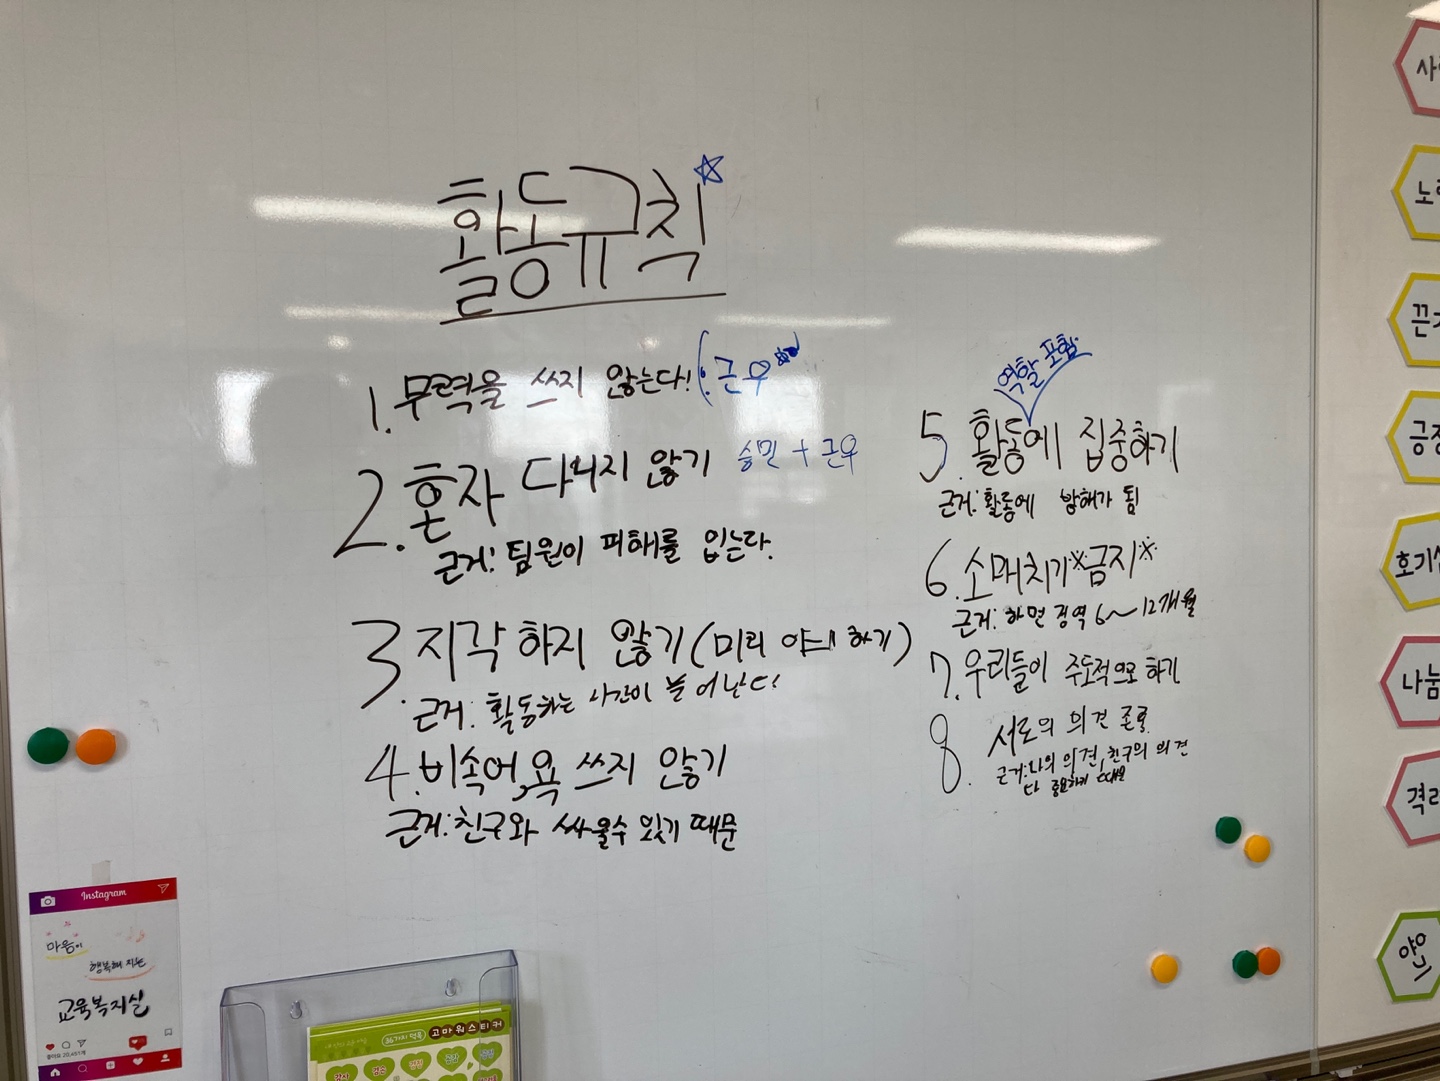 활동규칙☆
1. 무력을 쓰지 않는다! (:근우
2. 혼자 다니지 않기 승민 + 근우
근거: 팀원이 피해를 입는다.
3. 지각 하지 않기 (미리 얘기 하기)
근거: 활동하는 시간이 늘어난다!
4. 비속어, 욕 쓰지 않기
근거: 친구와 싸울수 있기 때문
역할 포함
5. 활동에 집중하기
근거: 활동에 방해가 됨
6. 소매치기 ※금지※
근거: 하면 징역 6~12개월
7. 우리들이 주도적으로 하기
8. 서로의 의견 존중
근거: 나의 의견, 친구의 의견
다 중요하기 때문
Instagram
마음이
행복해 지는
교육복지실
좋아요 20,451개
36가지 덕목 고마워스티커
감사
겸손
노
끈
긍정
호기심
나눔
격려